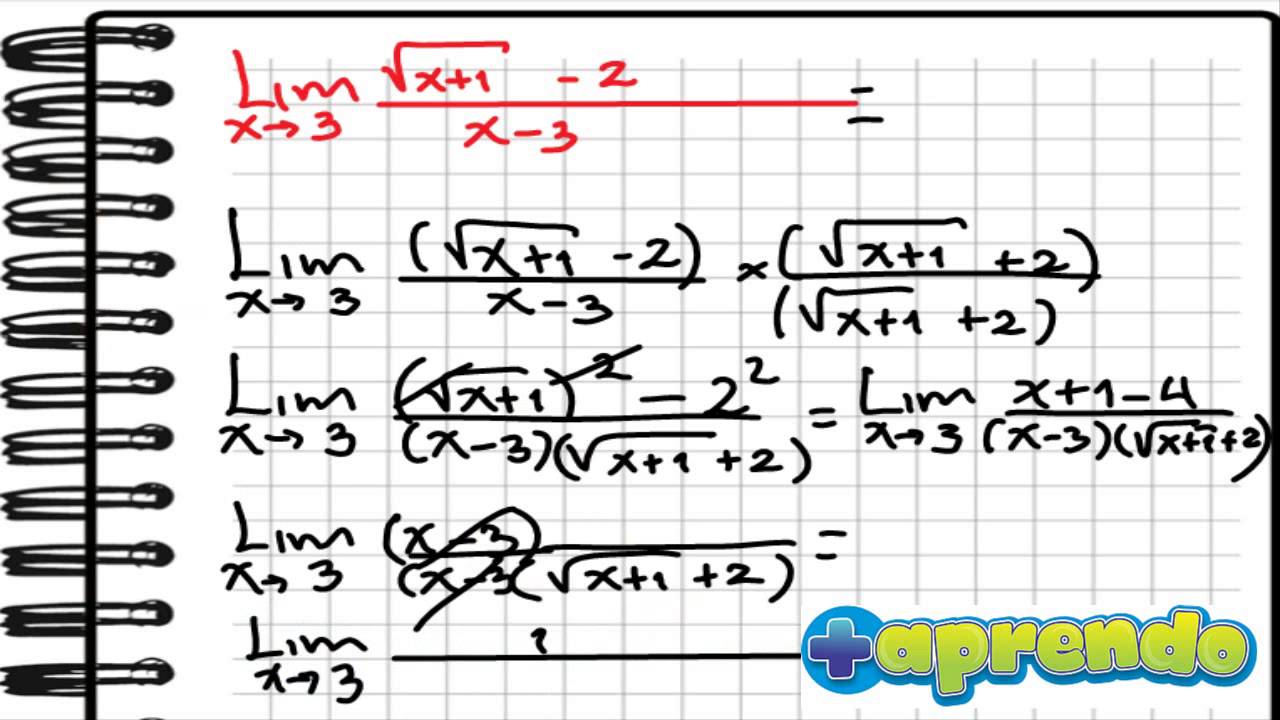 Lim x→3 (√(x+1) - 2)/(x-3) =
Lim x→3 (√(x+1) - 2)/(x-3) × (√(x+1) + 2)/(√(x+1) + 2)
Lim x→3 ((√(x+1))² - 2²)/((x-3)(√(x+1) + 2)) = Lim x→3 (x+1-4)/((x-3)(√(x+1)+2))
Lim x→3 (x-3)/((x-3)(√(x+1) + 2)) =
Lim x→3 1/
+aprendo